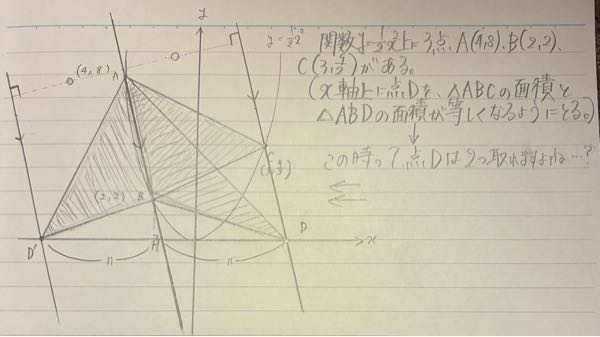 y
y=1/2x²
関数y=1/2x²上に3点、A(4,8)、B(2,2)、
C(3,9/2)がある。
(x軸上に点Dを、△ABCの面積と
△ABDの面積が等しくなるようにとる。)
↓
この時って、点Dは2つ取れますよね…?
(4,8)
A
C
(3,9/2)
(2,2)
B
D'
D
x